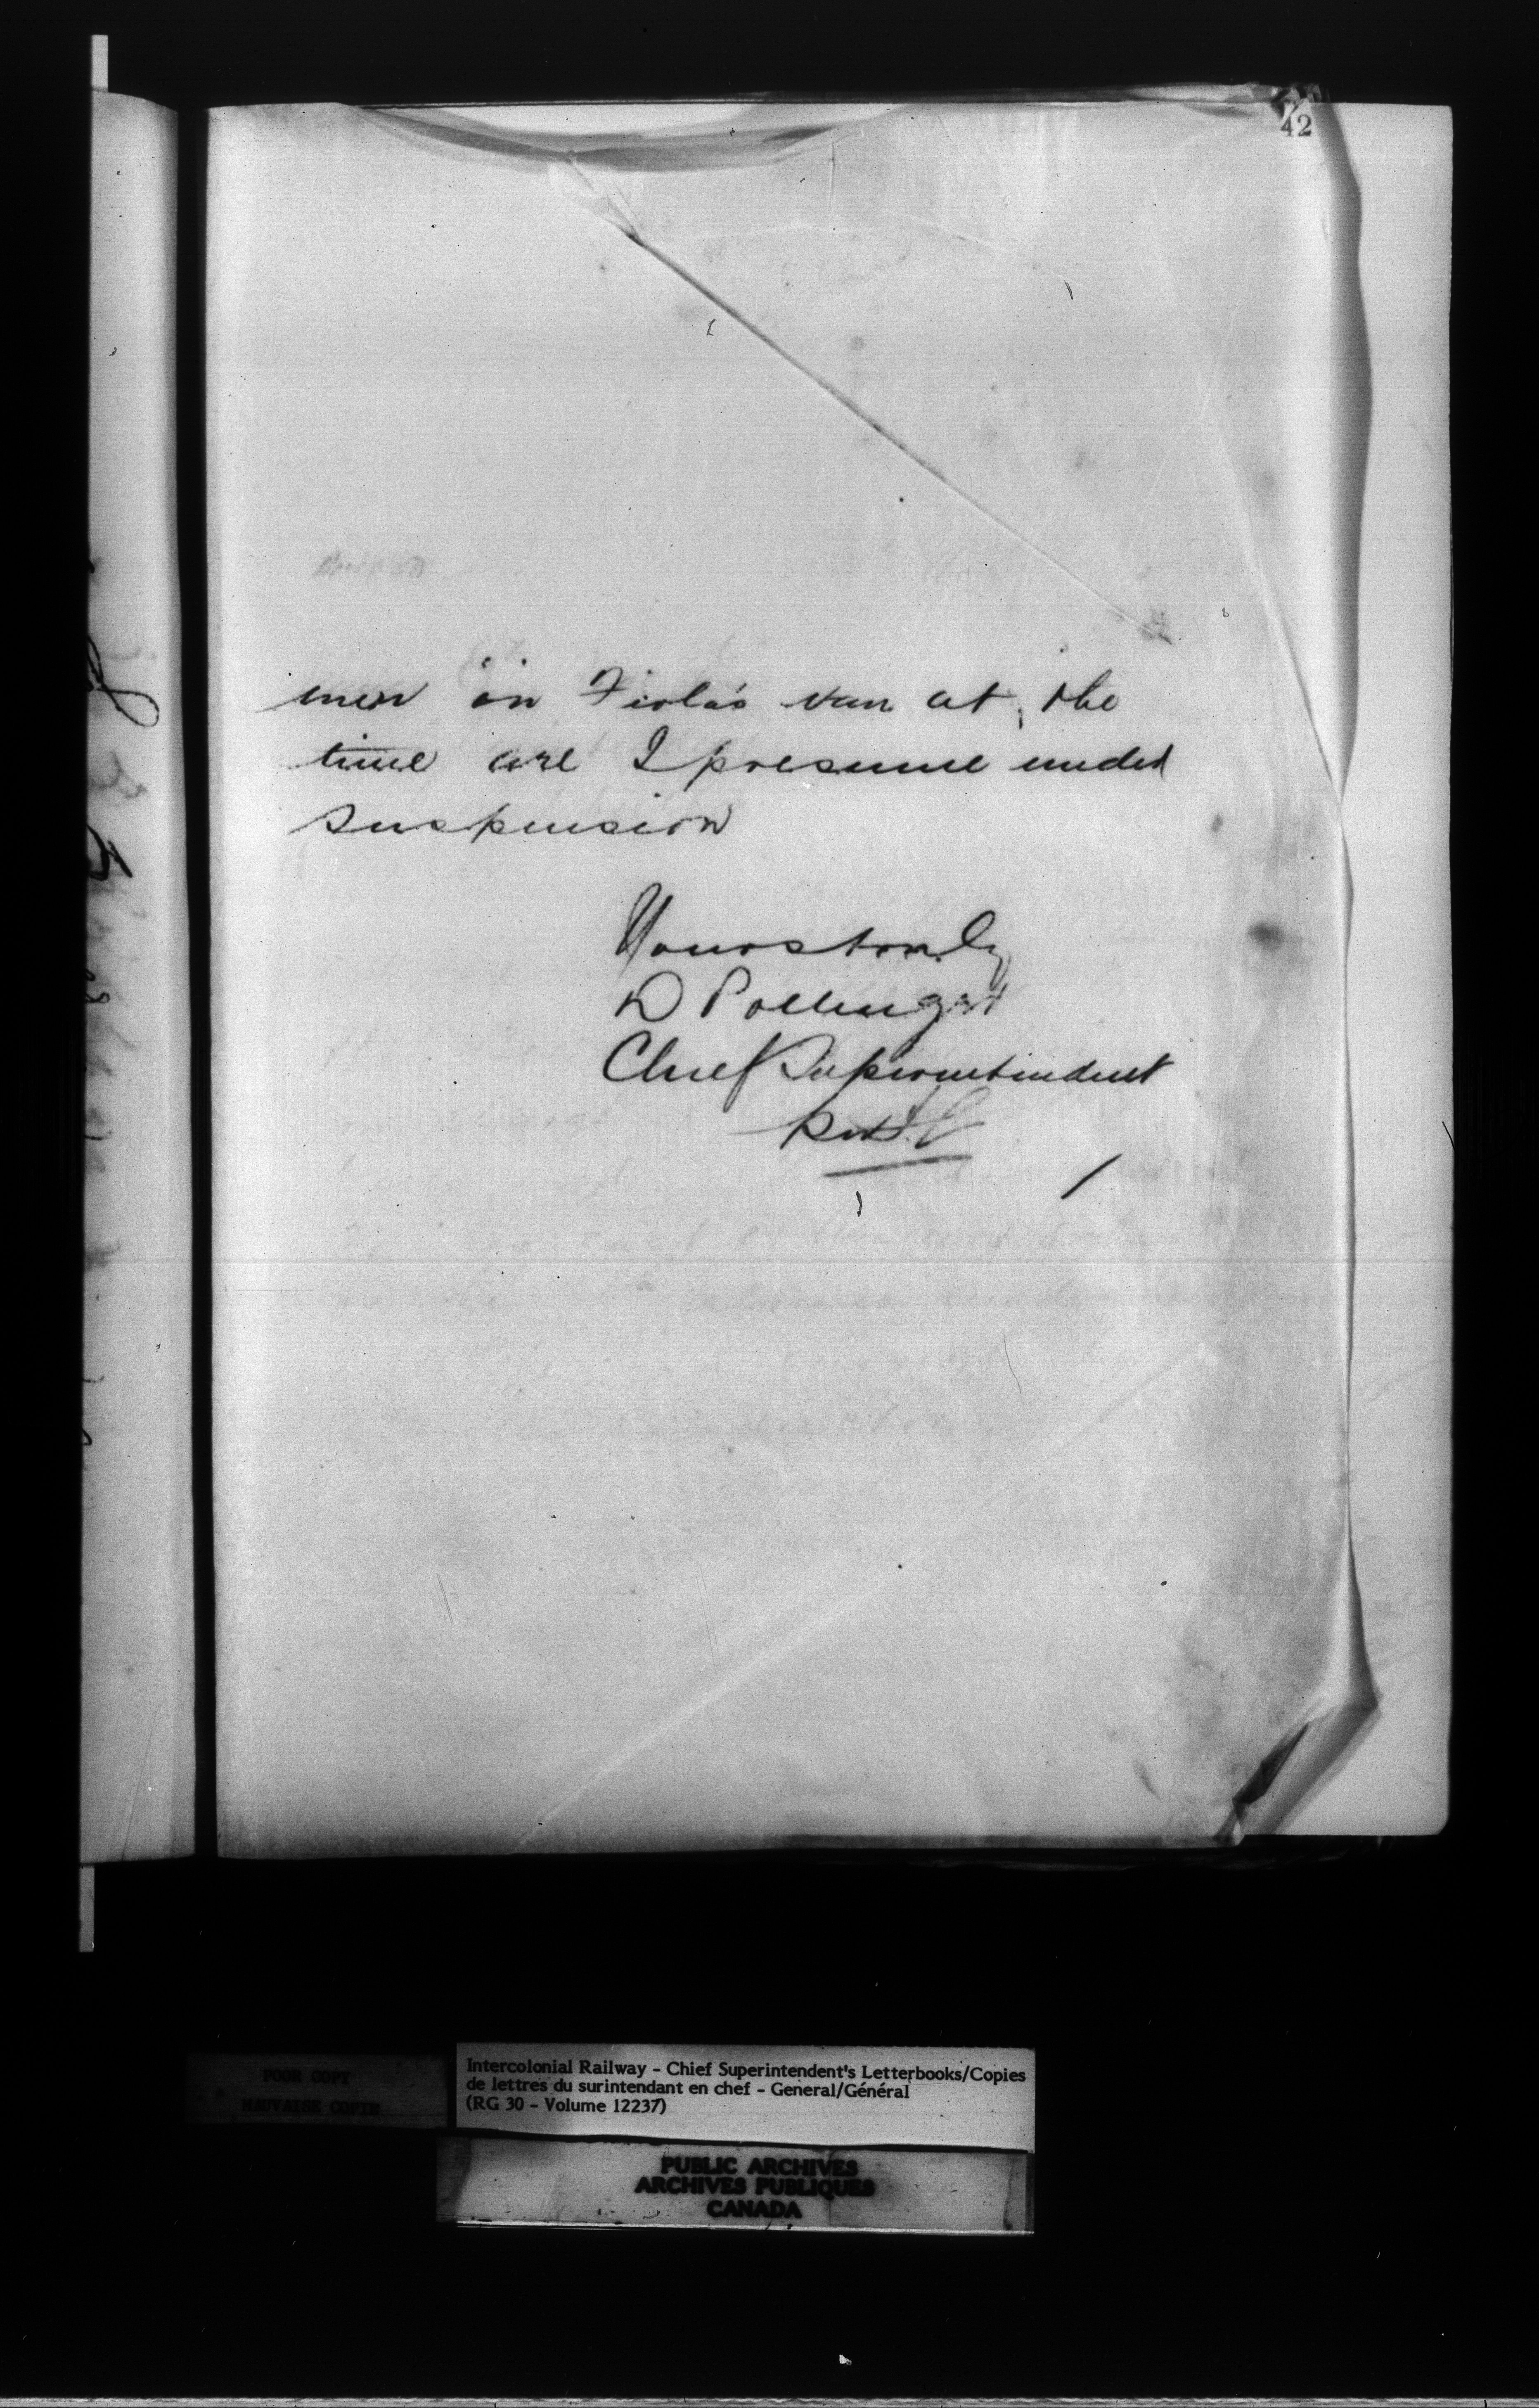 42
men in Fiola's van at the
time are I presume under
suspension
Yours truly
D Pottinger
Chief Superintendent
POOR COPY
MAUVAISE COPIE
Intercolonial Railway - Chief Superintendent's Letterbooks/Copies
de lettres du surintendant en chef - General/Général
(RG 30 - Volume 12237)
PUBLIC ARCHIVES
ARCHIVES PUBLIQUES
CANADA